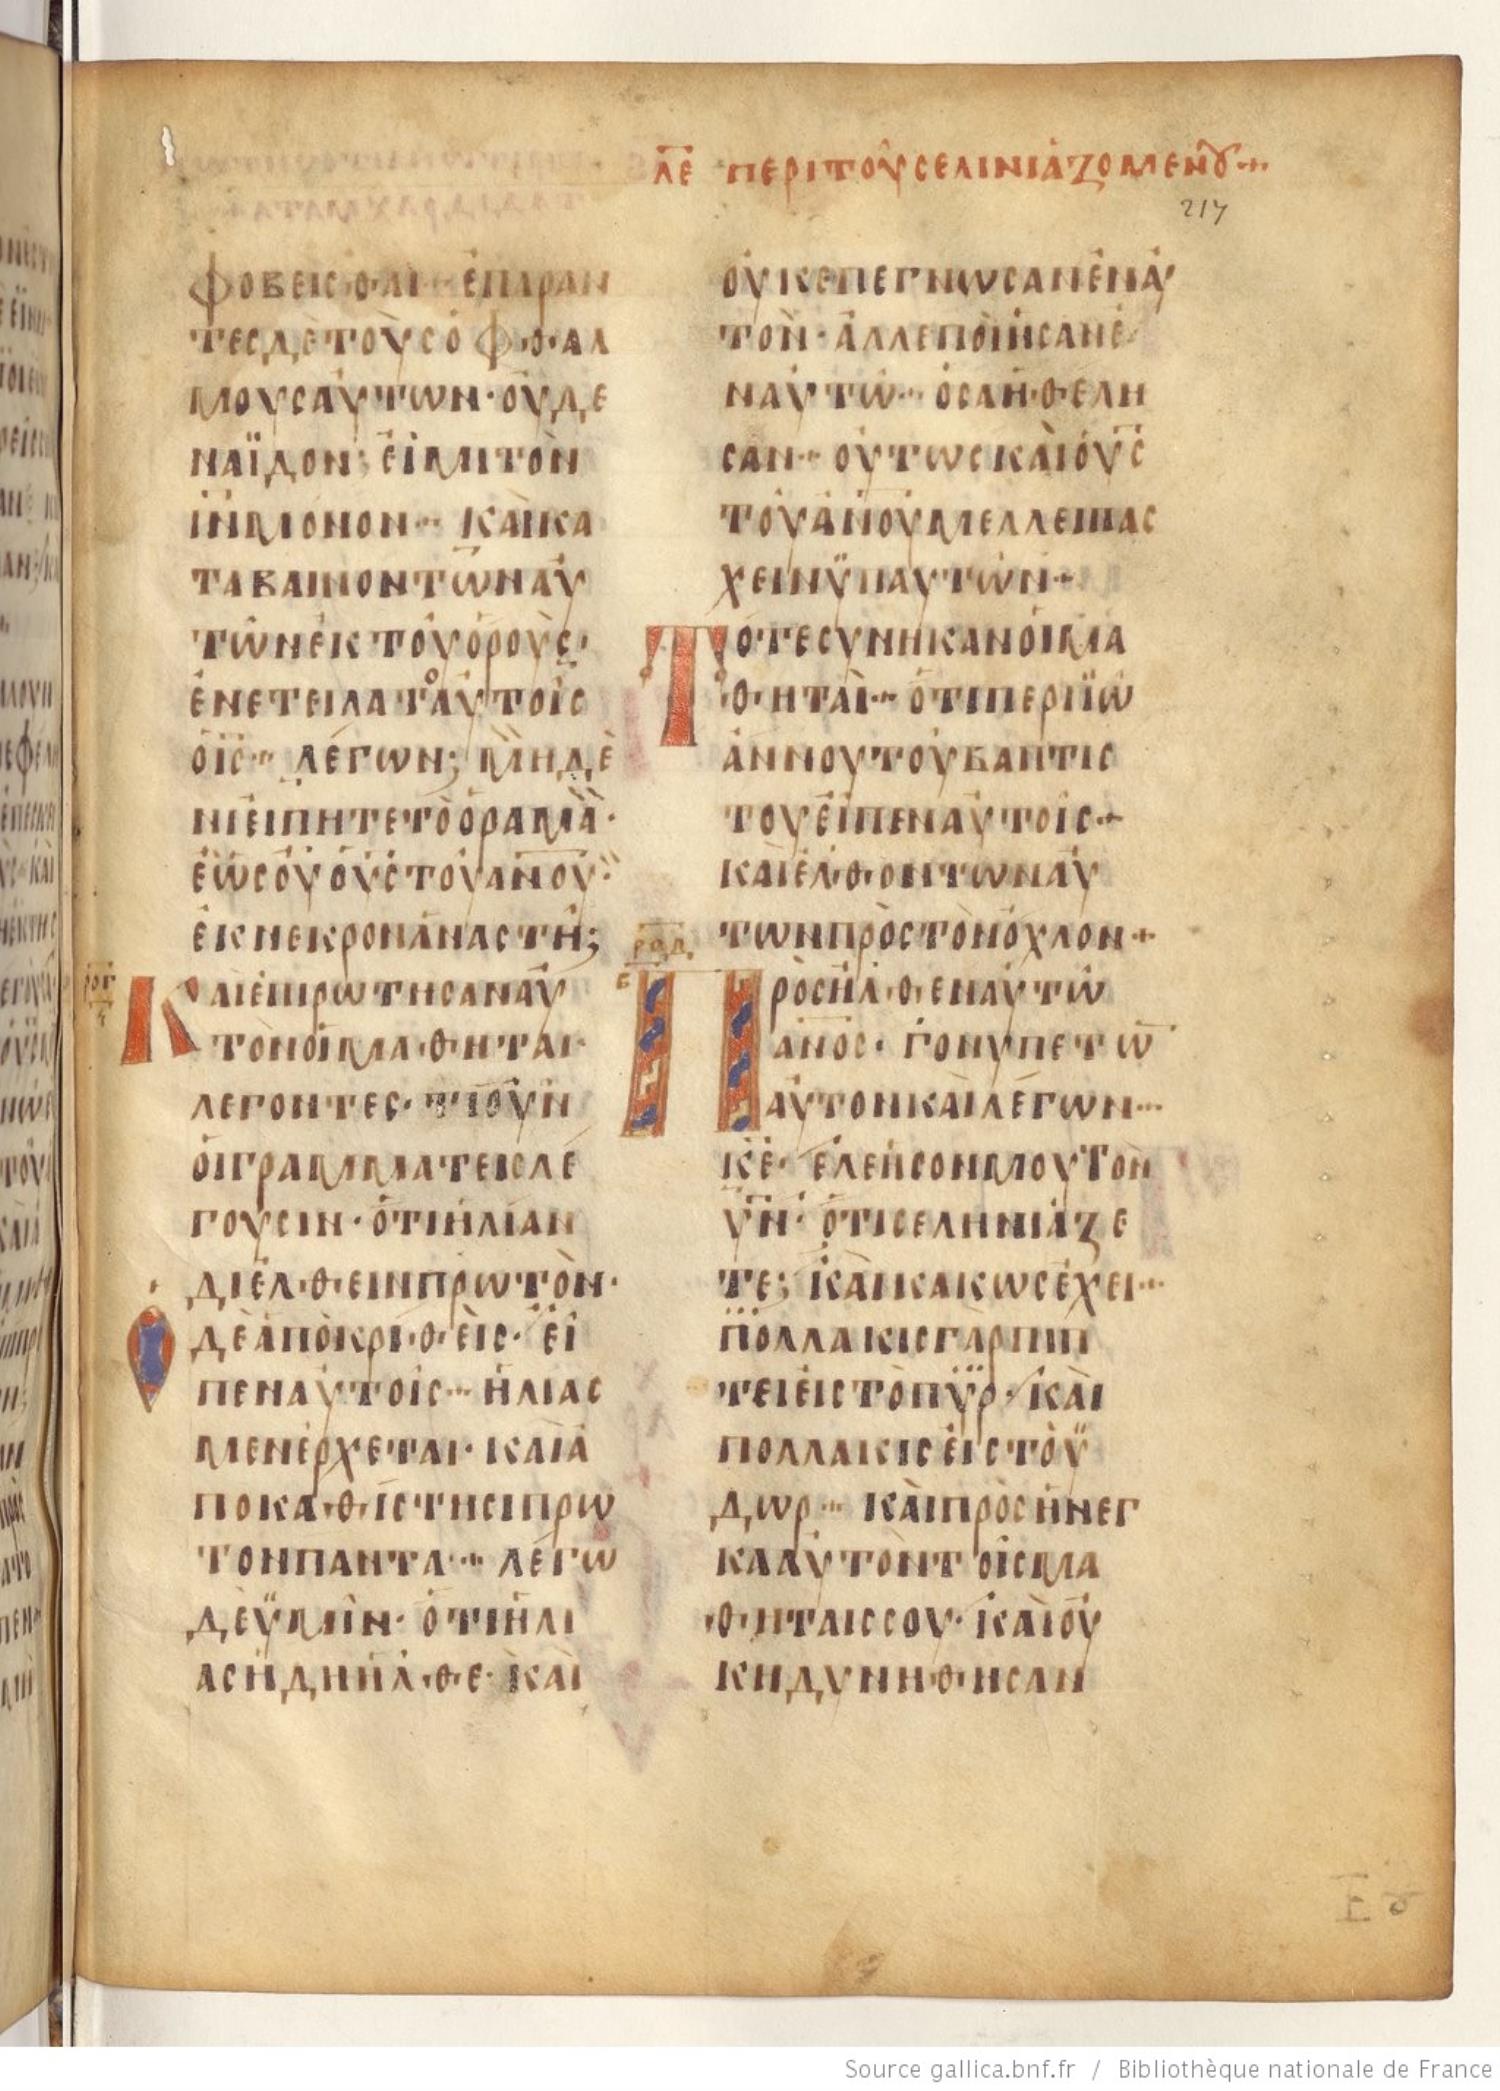 ΛΕ ΠΕΡΙ ΤΟΥ ΣΕΛΙΝΙΑΖΟΜΕΝΟΥ
217
ΦΟΒΕΙΣΘΑΙ· ΕΠΑΡΑΝ
ΤΕΣ ΔΕ ΤΟΥΣ ΟΦΘΑΛ
ΜΟΥΣ ΑΥΤΩΝ· ΟΥΔΕ
ΝΑ ΪΔΟΝ; ΕΙ ΜΙ ΤΟΝ
ΙΝ ΜΟΝΟΝ·· ΚΑΙ ΚΑ
ΤΑΒΑΙΝΟΝΤΩΝ ΑΥ
ΤΩΝ ΕΚ ΤΟΥ ΟΡΟΥΣ·
ΕΝΕΤΕΙΛΑΤΟ ΑΥΤΟΙΣ
Ο ΙΣ·· ΛΕΓΩΝ; ΜΗΔΕ
ΝΙ ΕΙΠΗΤΕ ΤΟ ΟΡΑΜΑ·
ΕΩΣ ΟΥ Ο ΥΣ ΤΟΥ ΑΝΟΥ·
ΕΚ ΝΕΚΡΟΝ ΑΝΑΣΤΗ;
ΡΟΓ
ΚΑΙ ΕΠΙΡΩΤΗΣΑΝ ΑΥ
ΤΟΝ ΟΙ ΜΑΘΗΤΑΙ·
ΛΕΓΟΝΤΕΣ· ΤΙ ΟΥΝ
ΟΙ ΓΡΑΜΜΑΤΕΙΣ ΛΕ
ΓΟΥΣΙΝ· ΟΤΙ ΗΛΙΑΝ
ΔΙ ΕΛΘΕΙΝ ΠΡΩΤΟΝ·
Ο ΔΕ ΑΠΟΚΡΙΘΕΙΣ· ΕΙ
ΠΕΝ ΑΥΤΟΙΣ·· ΗΛΙΑΣ
ΜΕΝ ΕΡΧΕΤΑΙ· ΚΑΙ Α
ΠΟΚΑΘΙΣΤΗΣΙ ΠΡΩ
ΤΟΝ ΠΑΝΤΑ·· ΛΕΓΩ
ΔΕ ΫΜΙΝ· ΟΤΙ ΗΛΙ
ΑΣ ΗΔΗ ΗΛΘΕ· ΚΑΙ
ΟΥΚ ΕΠΕΓΝΩΣΑΝ ΕΝ ΑΥ
ΤΟΝ· ΑΛΛ ΕΠΟΙΗΣΑΝ Ε
Ν ΑΥΤΩ·· ΟΣΑ ΗΘΕΛΗ
ΣΑΝ·· ΟΥΤΩΣ ΚΑΙ Ο ΥΣ
ΤΟΥ ΑΝΟΥ ΜΕΛΛΕΙ ΠΑΣ
ΧΕΙΝ ΫΠ ΑΥΤΩΝ·
ΤΟΤΕ ΣΥΝΗΚΑΝ ΟΙ ΜΑ
ΘΗΤΑΙ·· ΟΤΙ ΠΕΡΙ ΪΩ
ΑΝΝΟΥ ΤΟΥ ΒΑΠΤΙΣ
ΤΟΥ ΕΙΠΕΝ ΑΥΤΟΙΣ·
ΚΑΙ ΕΛΘΟΝΤΩΝ ΑΥ
ΤΩΝ ΠΡΟΣ ΤΟΝ ΟΧΛΟΝ·
ΡΟΔ
Ε
ΠΡΟΣΗΛΘΕΝ ΑΥΤΩ
ΑΝΟΣ· ΓΟΝΥΠΕΤΩ
ΑΥΤΟΝ ΚΑΙ ΛΕΓΩΝ··
ΚΕ· ΕΛΕΗΣΟΝ ΜΟΥ ΤΟΝ
ΥΝ· ΟΤΙ ΣΕΛΗΝΙΑΖΕ
ΤΕ; ΚΑΙ ΚΑΚΩΣ ΕΧΕΙ··
ΠΟΛΛΑΚΙΣ ΓΑΡ ΠΙΠ
ΤΕΙ ΕΙΣ ΤΟ ΠΫΡ· ΚΑΙ
ΠΟΛΛΑΚΙΣ ΕΙΣ ΤΟ Ϋ
ΔΩΡ·· ΚΑΙ ΠΡΟΣΗΝΕΓ
ΚΑ ΑΥΤΟΝ ΤΟΙΣ ΜΑ
ΘΗΤΑΙΣ ΣΟΥ· ΚΑΙ ΟΥ
Κ ΗΔΥΝΗΘΗΣΑΝ
Source gallica.bnf.fr / Bibliothèque nationale de France